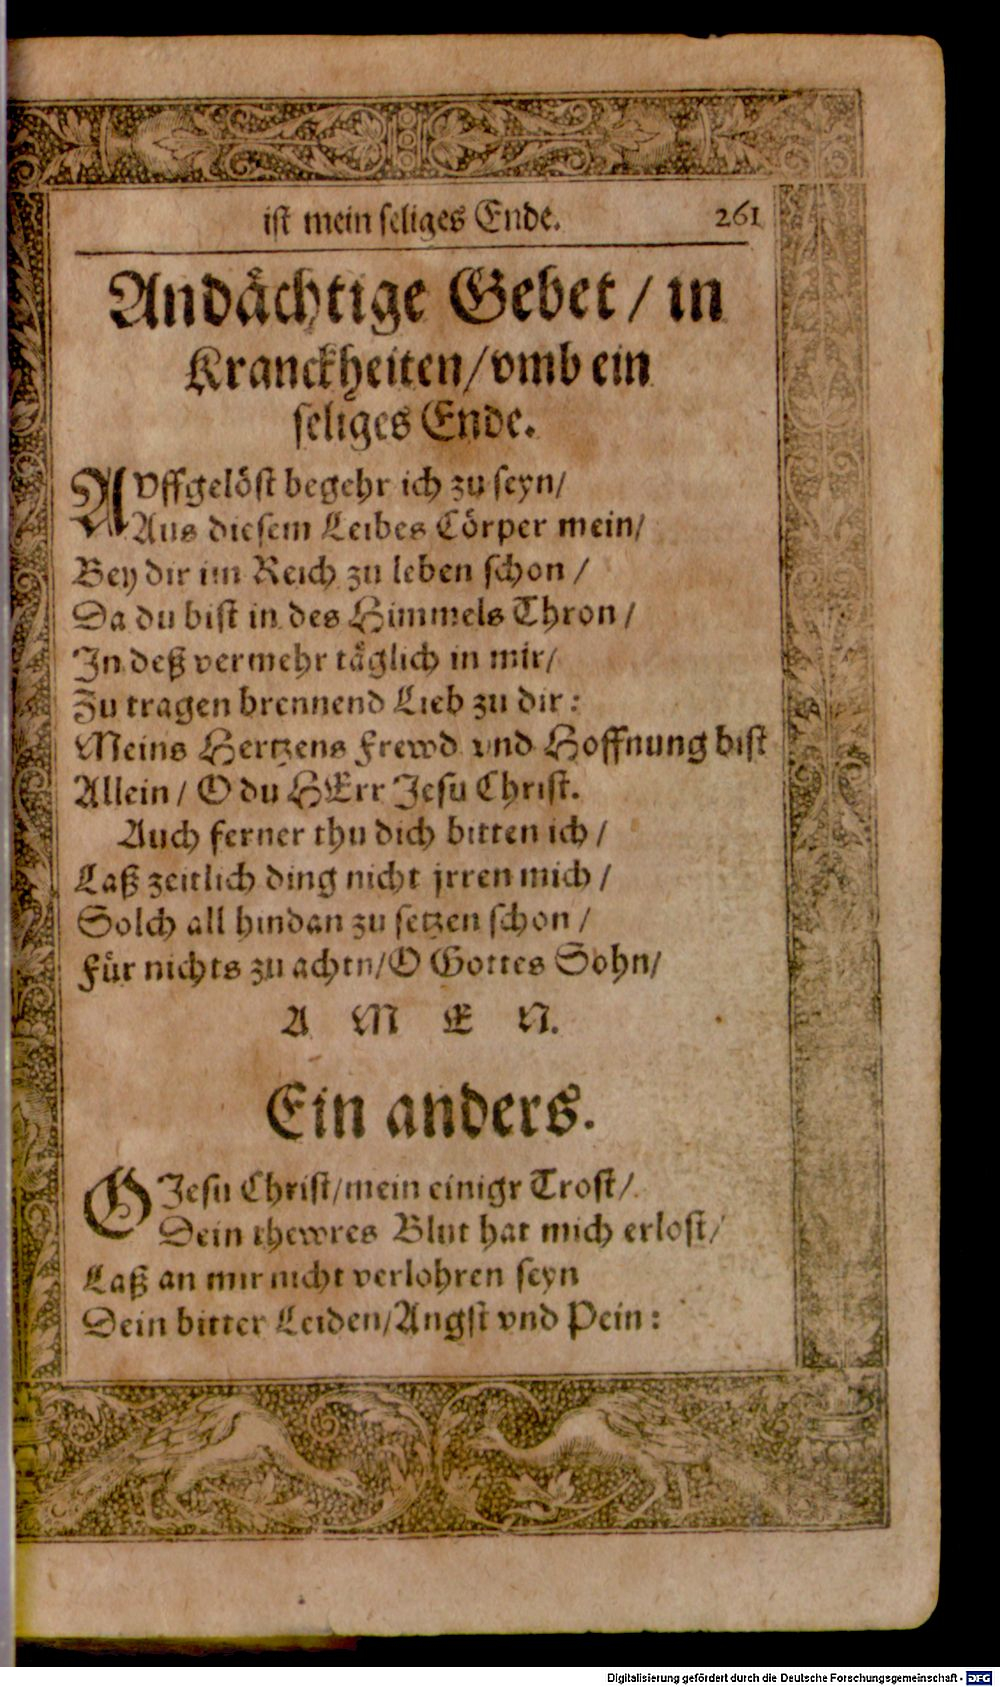 ist mein seliges Ende. 261
Andåchtige Gebet / in
Kranckheiten/vmb ein
seliges Ende.
AVffgelöst begehr ich zu seyn/
Aus diesem Leibes Cörper mein/
Bey dir im Reich zu leben schon /
Da du bist in des Himmels Thron /
In deß vermehr täglich in mir/
Zu tragen brennend Lieb zu dir:
Meins Hertzens Frewd vnd Hoffnung bist
Allein / O du HErr Jesu Christ.
Auch ferner thu dich bitten ich /
Laß zeitlich ding nicht jrren mich /
Solch all hindan zu setzen schon /
Für nichts zu achtn/O Gottes Sohn/
A M E N.
Ein anders.
O Jesu Christ/mein einigr Trost/
Dein thewres Blut hat mich erlost/
Laß an mir nicht verlohren seyn
Dein bitter Leiden/Angst vnd Pein:
Digitalisierung gefördert durch die Deutsche Forschungsgemeinschaft - DFG